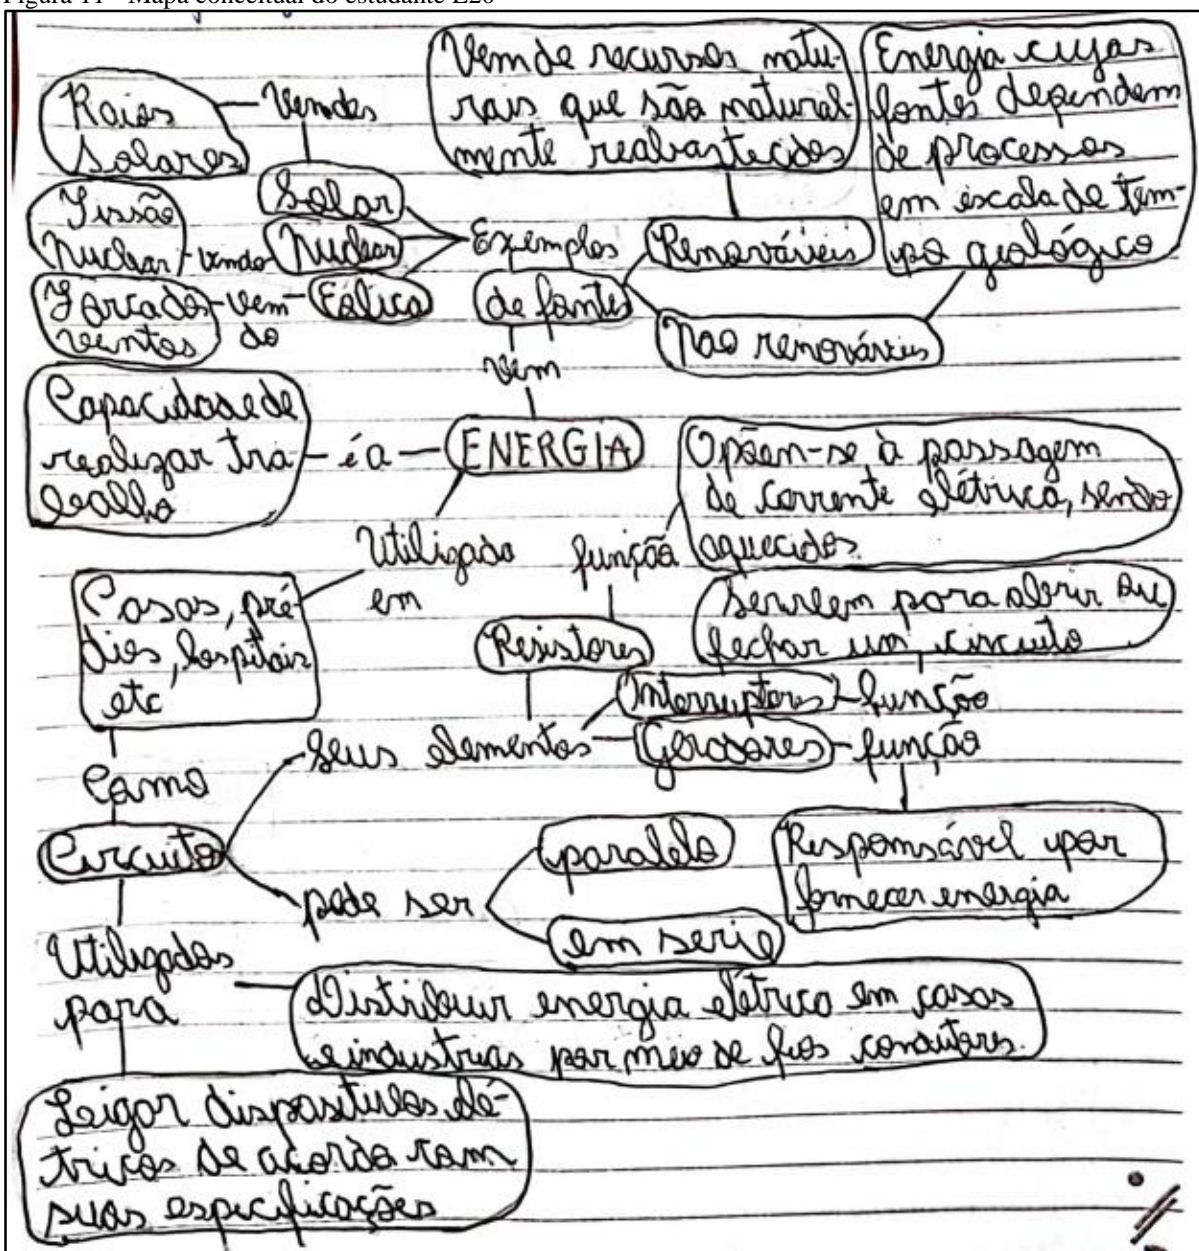 Figura 11 - Mapa conceitual do estudante E20
Raios
solares
Vem das
Vem de recursos natu-
rais que são natural-
mente reabastecidos
Energia cujas
fontes dependem
de processos
em escala de tem-
po geológico
Fissão
Nuclear
vem da
Solar
Nuclear
Eólica
Exemplos
de fontes
Renováveis
Não renováveis
Força dos
ventos
vem
do
vem
Capacidade de
realizar tra
balho
é a
ENERGIA
Opõem-se à passagem
de corrente elétrica, sendo
aquecidos.
Utilizada
em
função
Casas, pré-
dios, hospitais
etc
Resistores
Servem para abrir ou
fechar um circuito
Interruptores
função
Seus elementos
Geradores
função
Como
Circuito
pode ser
paralelo
em serie
Responsável por
fornecer energia
Utilizados
para
Distribuir energia elétrica em casas
e industrias por meio de fios condutores.
Ligar dispositivos elé-
tricos de acordo com
suas especificações